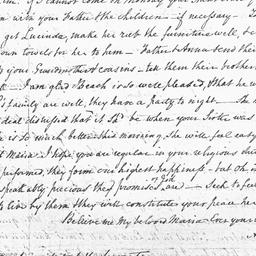 if I cannot come on monday your
with your Father & the children – if necessary – To
get Lucinda, make her rub the furniture well, be
own towels for her to them – Father & Anna send their
to your Grandmother & cousins – tell them their brother
– I am glad Beach is so well pleased, that he w
L's family are well, they have a party to night – She
deal disturbed that it shd be when your Sister was
is so much better this morning. She will feel easy
t Maria I hope you are regular in your religious du
performed, they form our highest happiness – but oh, in
speakably precious the promises of God are – Seek to feel
to live by them & they will constitute your peace her
Believe me My beloved Maria Ever your